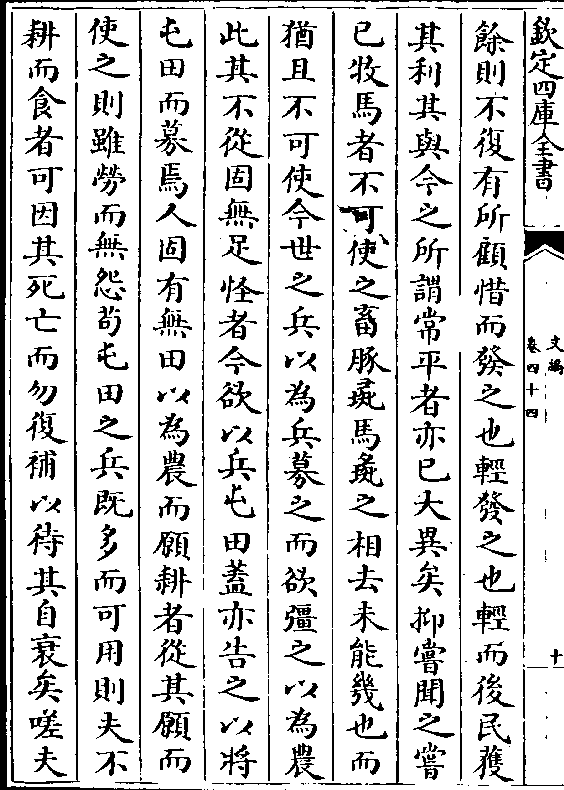 欽定四庫全書
文編
卷四十四
十
餘則不復有所顧惜而發之也輕發之也輕而後民獲
其利其與今之所謂常平者亦已大異矣抑嘗聞之嘗
已牧馬者不可使之畜豚彘馬彘之相去未能幾也而
猶且不可使今世之兵以為兵募之而欲彊之以為農
此其不從固無足怪者今欲以兵屯田蓋亦告之以將
屯田而募焉人固有無田以為農而願耕者從其願而
使之則雖勞而無怨苟屯田之兵既多而可用則夫不
耕而食者可因其死亡而勿復補以待其自衰矣嗟夫